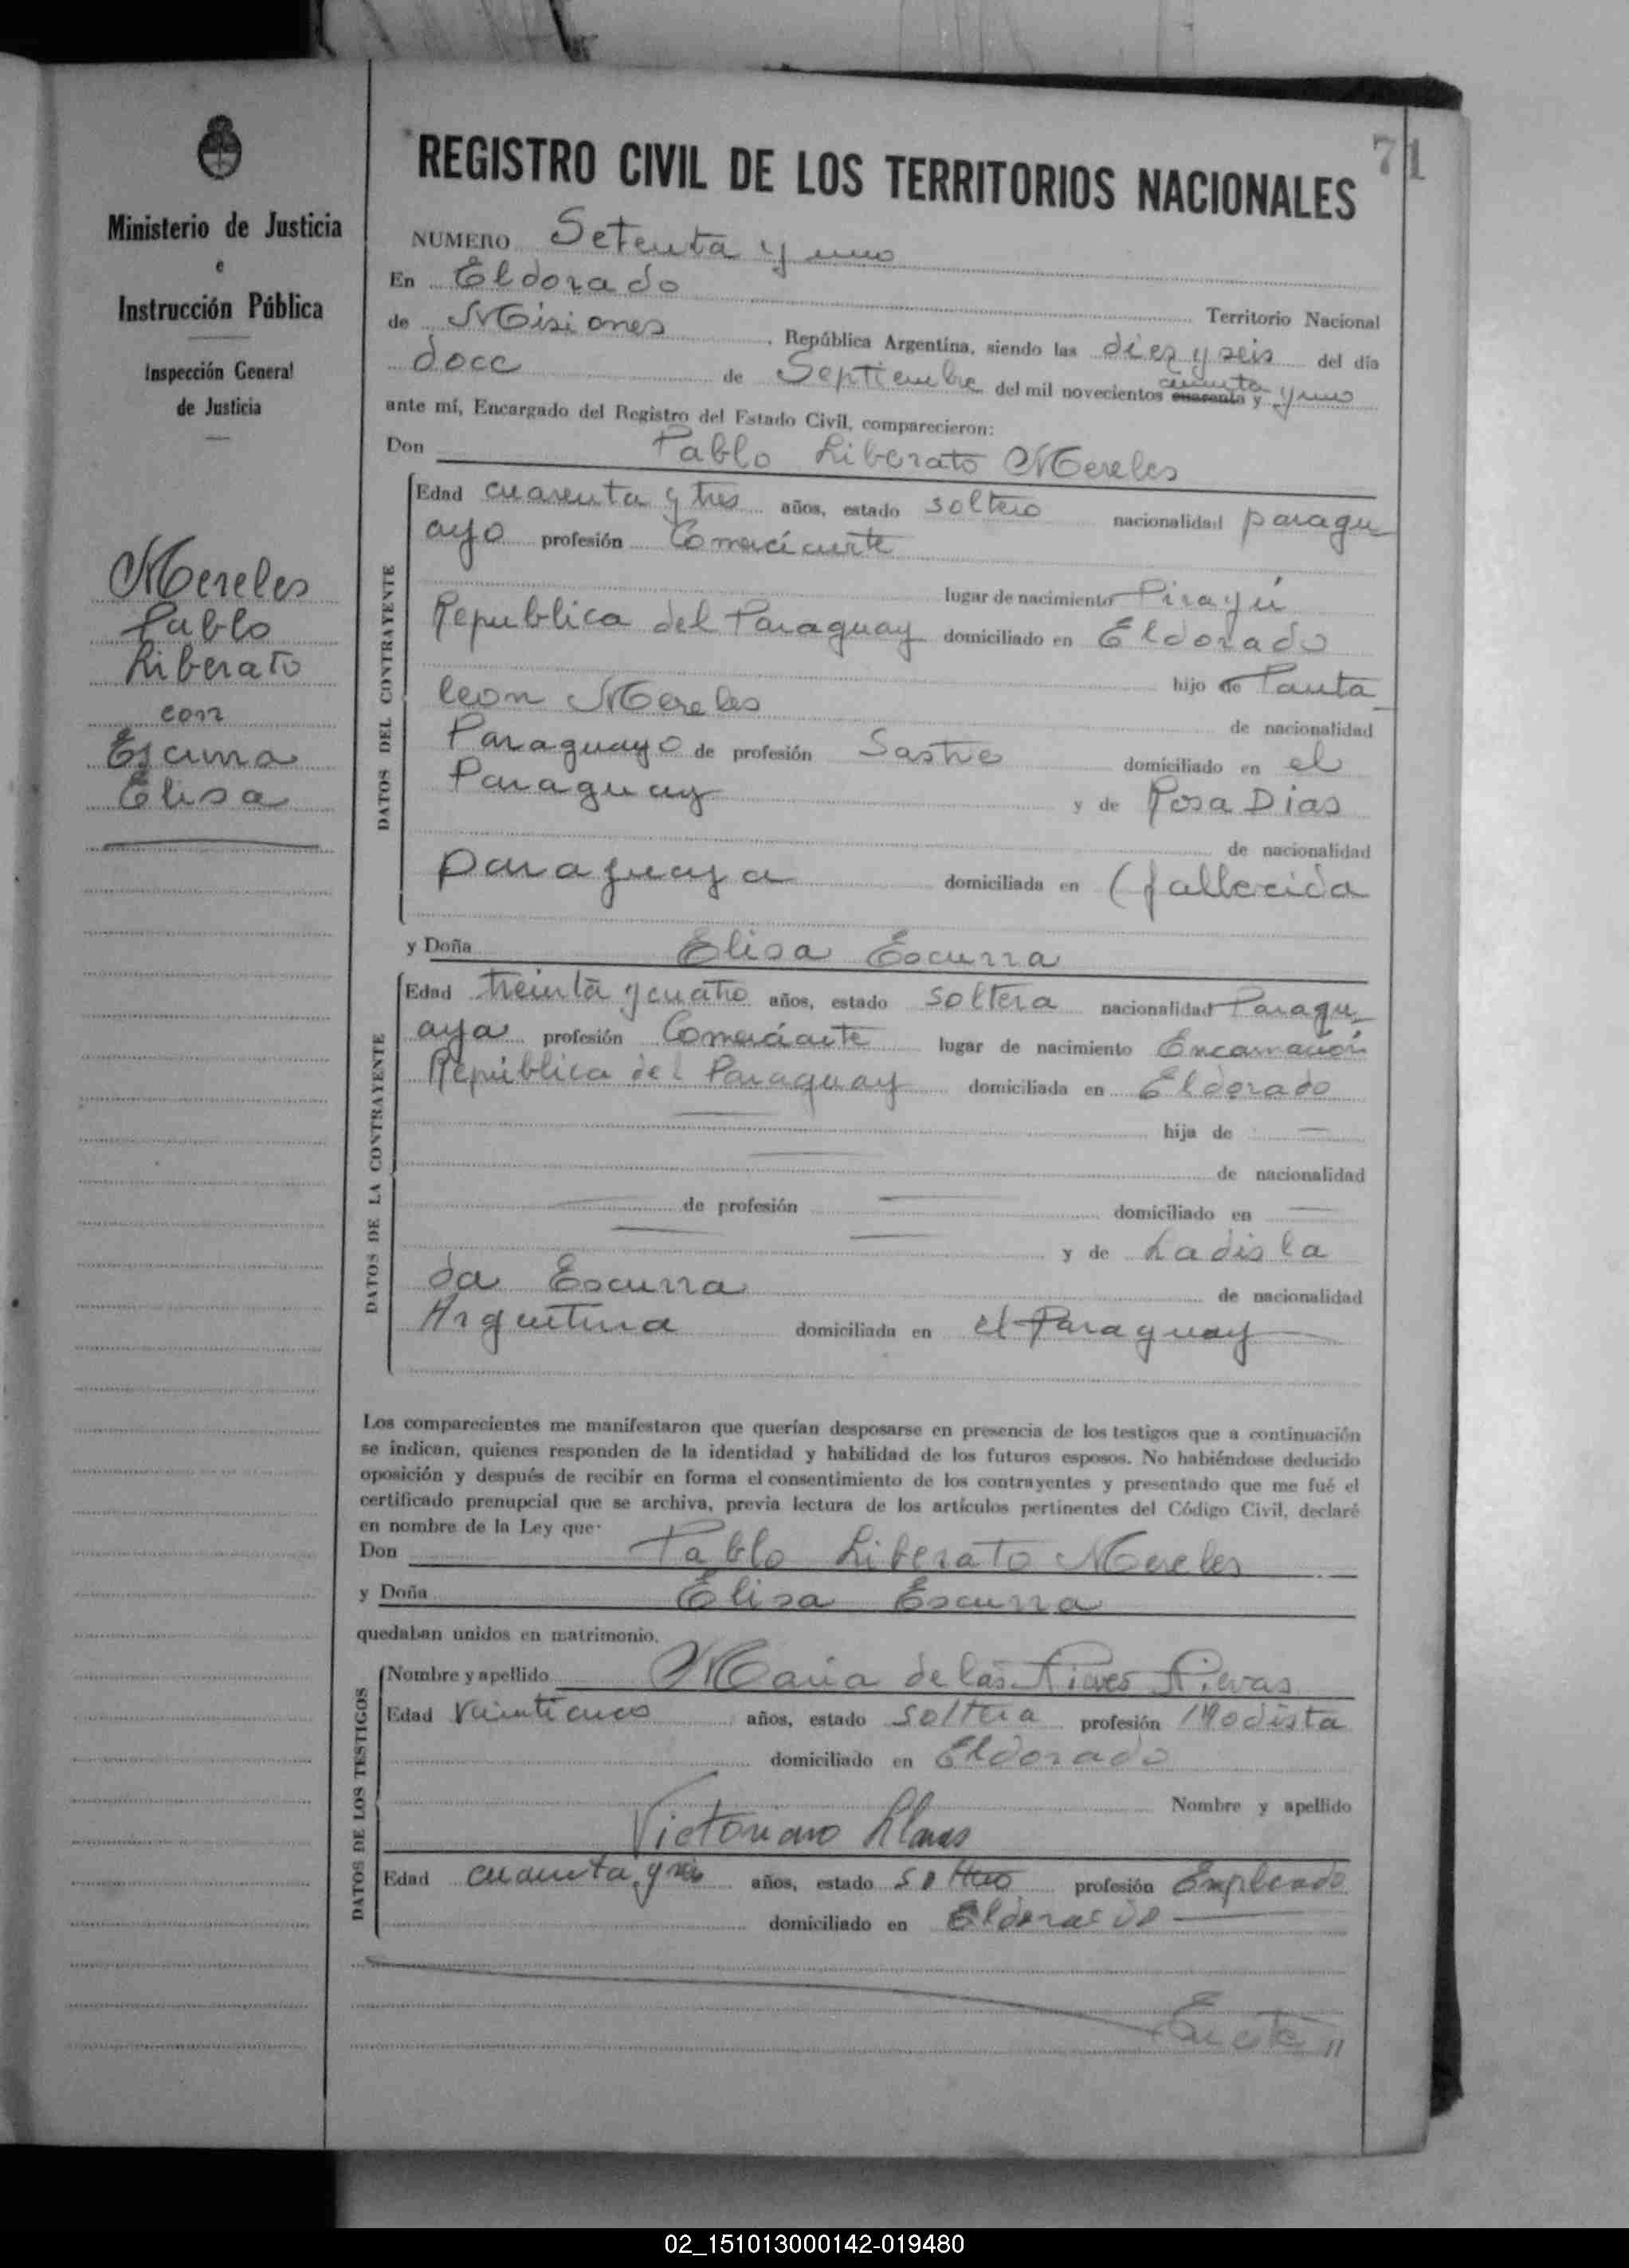 71
REGISTRO CIVIL DE LOS TERRITORIOS NACIONALES
Ministerio de Justicia
e
Instrucción Pública
Inspección General
de Justicia
Mereles
Pablo
Liberato
con
Escurra
Elisa
NUMERO Setenta y uno
En Eldorado
Territorio Nacional
de Misiones, República Argentina, siendo las diez y seis del día
doce de Septiembre del mil novecientos cuarenta y cincuenta y uno
ante mí, Encargado del Registro del Estado Civil, comparecieron:
Don Pablo Liberato Mereles
DATOS DEL CONTRAYENTE
Edad cuarenta y tres años, estado soltero nacionalidad paragu
ayo profesión Comerciante
lugar de nacimiento Pirayú
Republica del Paraguay domiciliado en Eldorado
hijo de Panta
leon Mereles
de nacionalidad
Paraguayo de profesión Sastre domiciliado en el
Paraguay y de Rosa Dias
de nacionalidad
paraguaya domiciliada en (fallecida
y Doña Elisa Escurra
DATOS DE LA CONTRAYENTE
Edad treinta y cuatro años, estado soltera nacionalidad Paragu
aya profesión Comerciante lugar de nacimiento Encarnación
República del Paraguay domiciliada en Eldorado
hija de —
de nacionalidad
de profesión — domiciliado en —
y de Ladisla
da Escurra de nacionalidad
Argentina domiciliada en el Paraguay
Los comparecientes me manifestaron que querían desposarse en presencia de los testigos que a continuación
se indican, quienes responden de la identidad y habilidad de los futuros esposos. No habiéndose deducido
oposición y después de recibir en forma el consentimiento de los contrayentes y presentado que me fué el
certificado prenupcial que se archiva, previa lectura de los artículos pertinentes del Código Civil, declaré
en nombre de la Ley que:
Don Pablo Liberato Mereles
y Doña Elisa Escurra
quedaban unidos en matrimonio.
DATOS DE LOS TESTIGOS
Nombre y apellido Maria de las Nieves
Edad Veinticinco años, estado soltera profesión Modista
domiciliado en Eldorado
Nombre y apellido
Victoriano
Edad cuarenta y años, estado soltero profesión Empleado
domiciliado en Eldorado
02_151013000142-019480